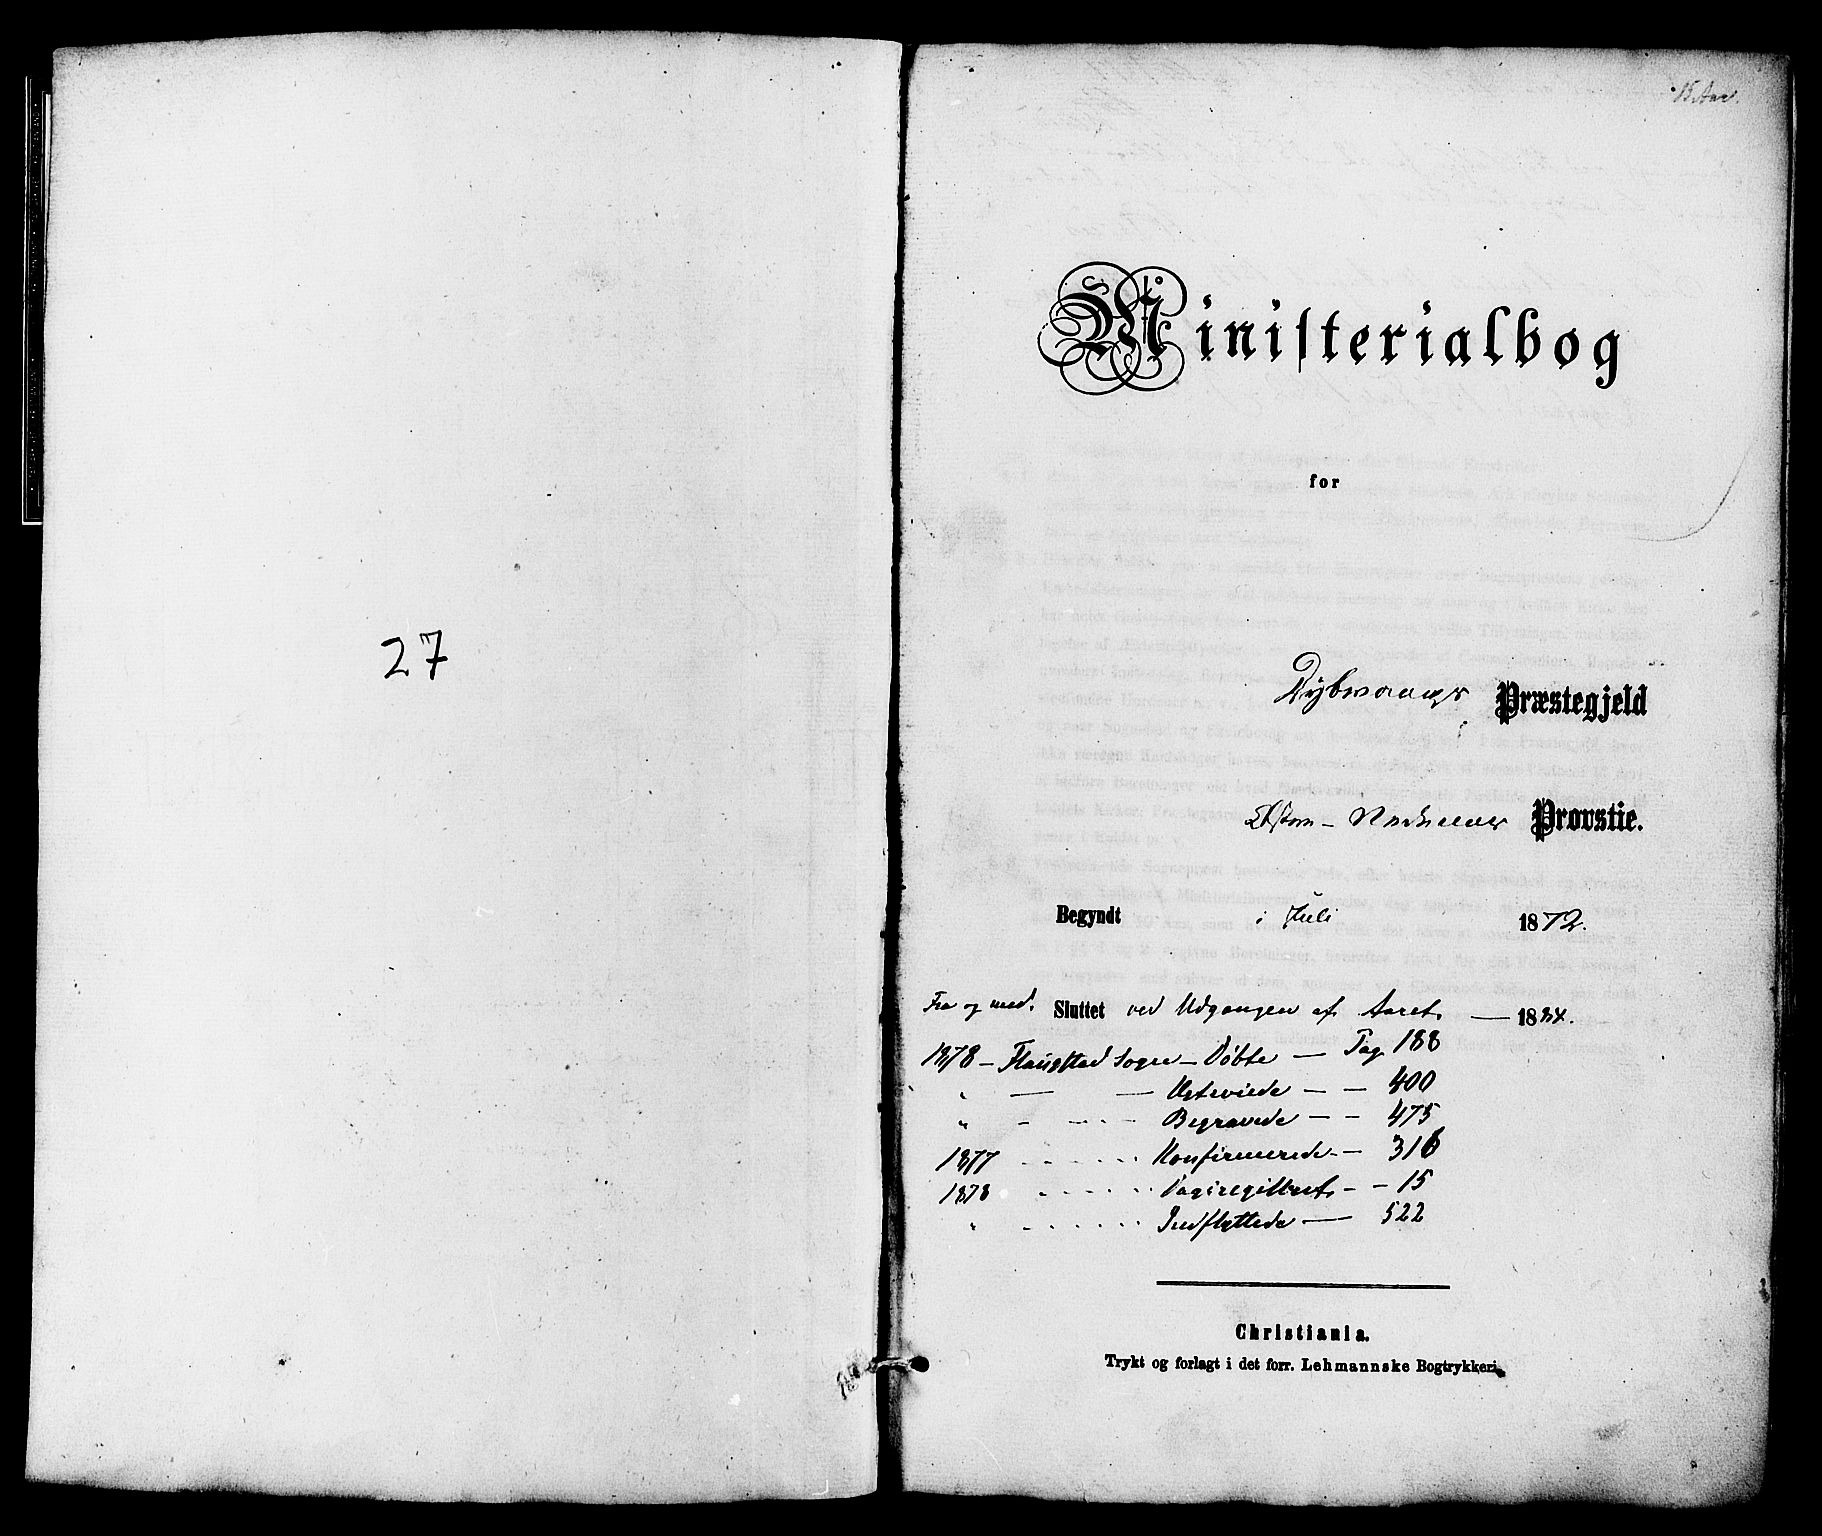 27
15 Aar.
Ministerialbog
for
Dybvaags Præstegjeld
Østre - Nedenæs Provstie.
Begyndt i Juli 1872.
Fra og med. Sluttet ved Udgangen af Aaret — 1884.
1878 - Flausstad Sogn - Døbte — Pag 188
" — — Egteviede - - 400
" - - - - Begravede - - 475
1877 - - - - - Konfirmerede - - 316
1878 - - - - - Dagsregistret - - 15
" - - - - - - Indflyttede — 522
Christiania.
Trykt og forlagt i det forr. Lehmannske Bogtrykkeri.